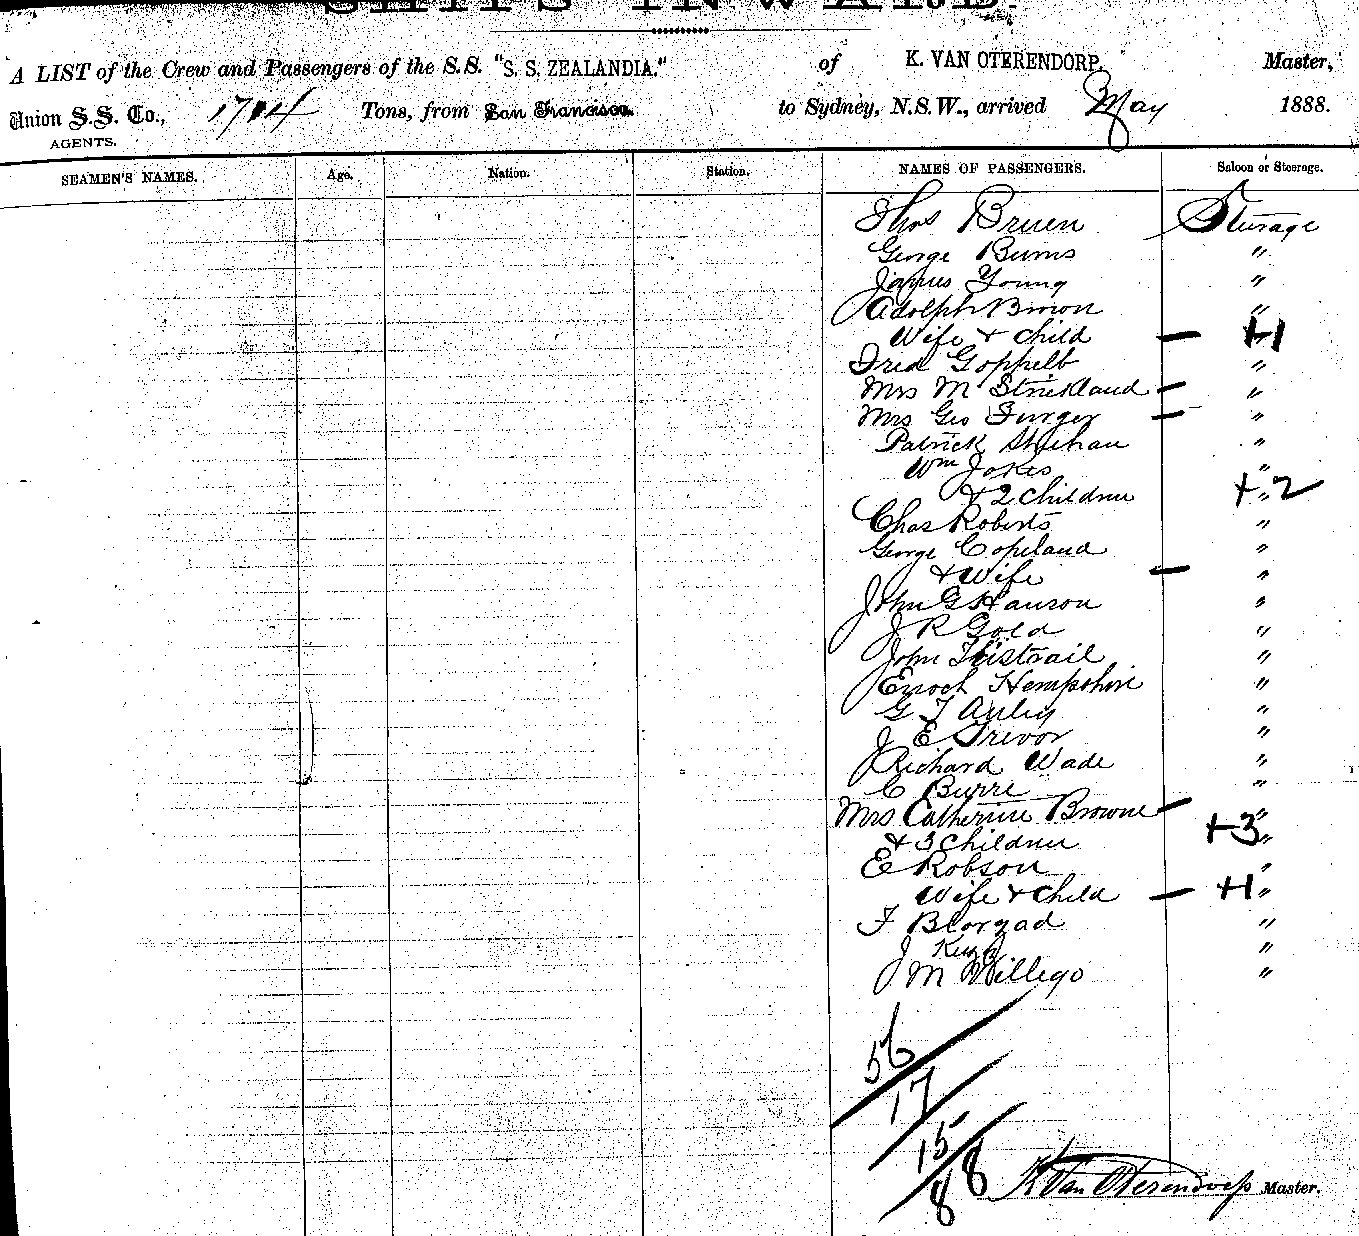 SHIPS INWARD.
A LIST of the Crew and Passengers of the S.S. "S. S. ZEALANDIA." of K. VAN OTERENDORP. Master,
Union S.S. Co., 1714 Tons, from San Francisco. to Sydney, N.S.W., arrived May 1888.
AGENTS.
SEAMEN'S NAMES. Age. Nation. Station. NAMES OF PASSENGERS. Saloon or Steerage.
Thos Bruen Steerage
George Burns "
James Young "
Adolph Brown "
Wife & Child — +1 "
Fred "
Mrs M Strickland — "
Mrs Geo — "
Patrick Sheehan "
Wm Jokes "
& 2 Children +2 "
Chas Roberts "
George Copeland "
& Wife — "
John G Hanson "
J R Gold "
John Tristrail "
Enoch Hempshire "
G T "
J E Trevor "
Richard Wade "
C Burre "
Mrs Catherine Browne — "
& 3 Children +3 "
E Robson "
Wife & Child — +1 "
F "
J King "
J M Willego "
56
17
15
88
K Van Oterendorp Master.